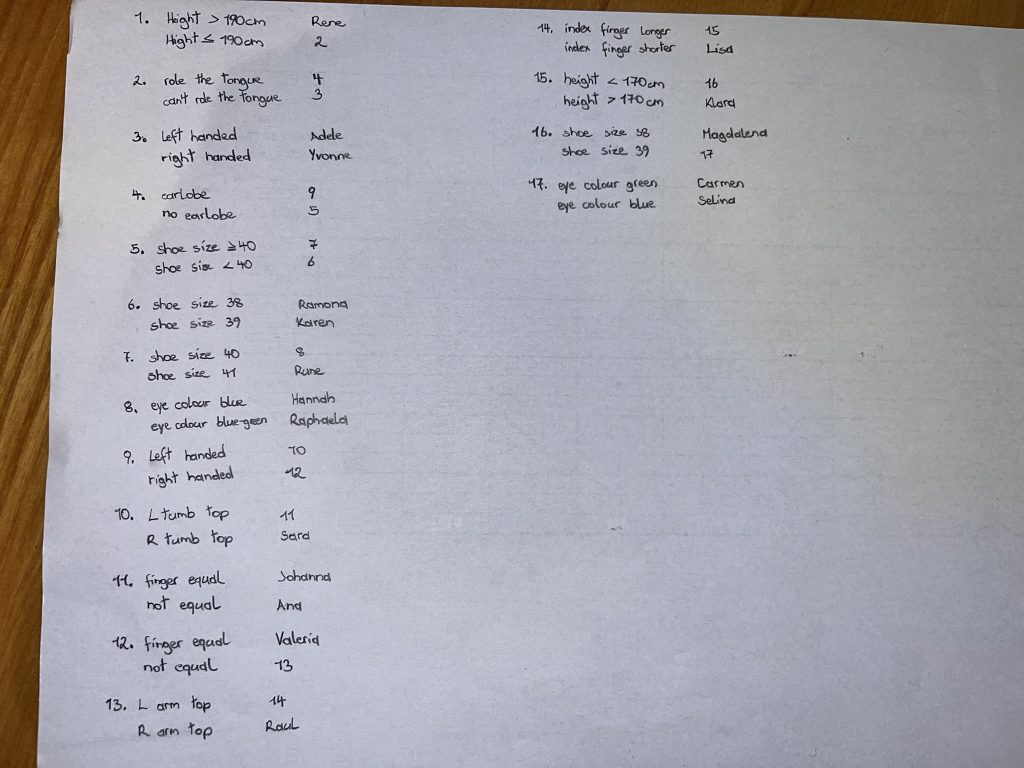 1. Height > 190cm Rene
Hight ≤ 190cm 2
2. role the tongue 4
can't role the tongue 3
3. left handed Adele
right handed Yvonne
4. earlobe 9
no earlobe 5
5. shoe size ≥ 40 7
shoe size < 40 6
6. shoe size 38 Ramona
shoe size 39 Karen
7. shoe size 40 8
shoe size 41 Rune
8. eye colour blue Hannah
eye colour blue-green Raphaela
9. Left handed 10
right handed 12
10. L tumb top 11
R tumb top Sara
11. finger equal Johanna
not equal Ana
12. finger equal Valeria
not equal 13
13. L arm top 14
R arm top Raul
14. index finger longer 15
index finger shorter Lisa
15. height < 170cm 16
height > 170cm Klara
16. shoe size 38 Magdalena
shoe size 39 17
17. eye colour green Carmen
eye colour blue Selina